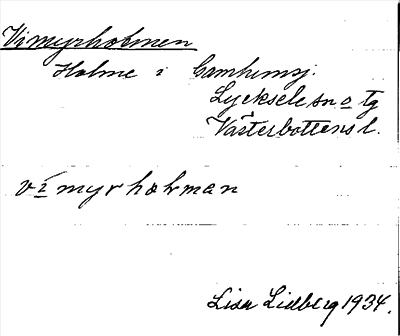 Vimyrholmen
Holme i
Lycksele sn o tg
Västerbottens l.
vímyrhorman
Lisa Lidberg 1934.